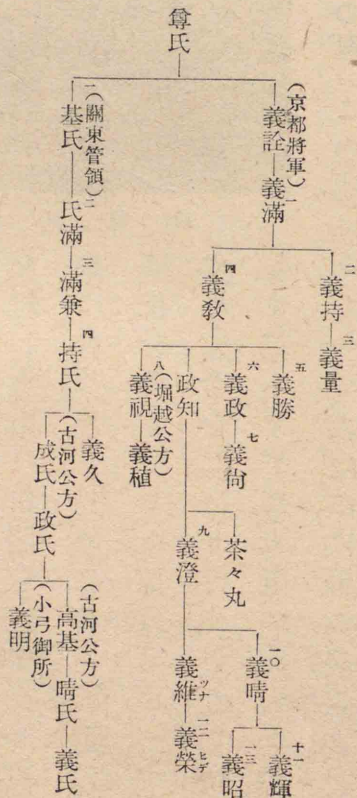 尊氏
(京都將軍)
義詮
一
義滿
二
義持
三
義量
四
義教
五
義勝
六
義政
七
義尙
政知
(堀越公方)
八
義視
義植
茶々丸
九
義澄
一〇
義晴
十一
義輝
一三
義昭
義維
ツナ
一二
義榮
ヒデ
(關東管領)
一
基氏
二
氏滿
三
滿兼
四
持氏
義久
(古河公方)
成氏
政氏
(古河公方)
高基
晴氏
義氏
(小弓御所)
義明